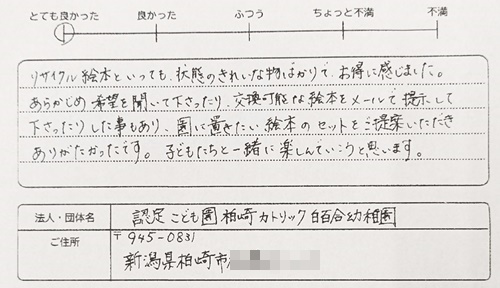 とても良かった 良かった ふつう ちょっと不満 不満
リサイクル絵本といっても、状態のきれいな物ばかりで、お得に感じました。
あらかじめ希望を聞いて下さったり、交換可能な絵本をメールで提示して
下さったりした事もあり、園に置きたい絵本のセットをご提案いただき
ありがたかったです。子どもたちと一緒に楽しんでいこうと思います。
法人・団体名 認定こども園 柏崎カトリック白百合幼稚園
ご住所 〒945-0831
新潟県柏崎市